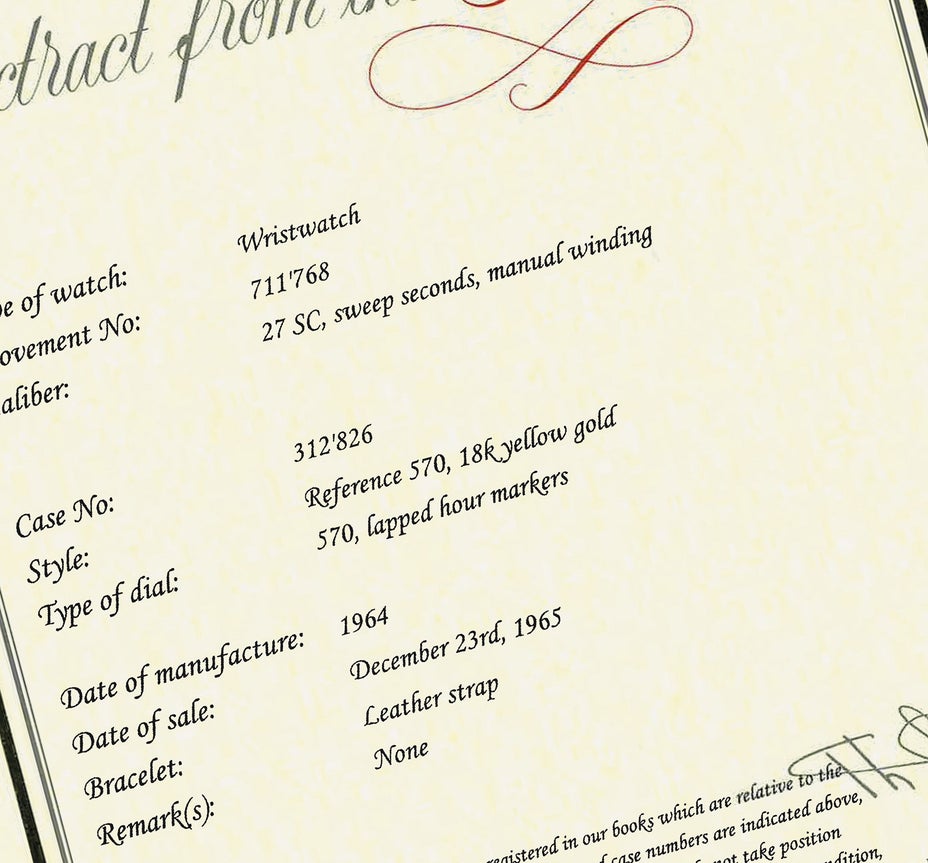 tract from the
pe of watch: Wristwatch
ovement No: 711'768
aliber: 27 SC, sweep seconds, manual winding
Case No: 312'826
Style: Reference 570, 18k yellow gold
Type of dial: 570, lapped hour markers
Date of manufacture: 1964
Date of sale: December 23rd, 1965
Bracelet: Leather strap
Remark(s): None
registered in our books which are relative to the
case numbers are indicated above,
not take position
ndition,